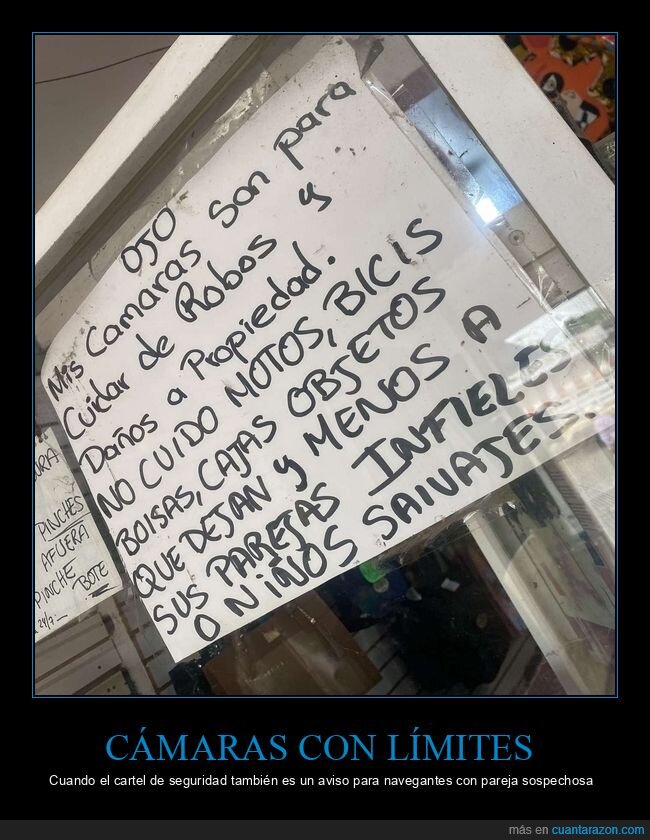 OJO
Mis Camaras son para
Cuidar de Robos y
Daños a Propiedad.
NO CUIDO MOTOS, BICIS
BOlSAS, CAJAS OBJETOS
QUE DEJAN y MENOS A
SUS PAREJAS INFIELES
O NiÑOS SAlVAJES.
PINCHES
AFUERA
PINCHE
BOTE
24/7
CÁMARAS CON LÍMITES
Cuando el cartel de seguridad también es un aviso para navegantes con pareja sospechosa
más en cuantarazon.com